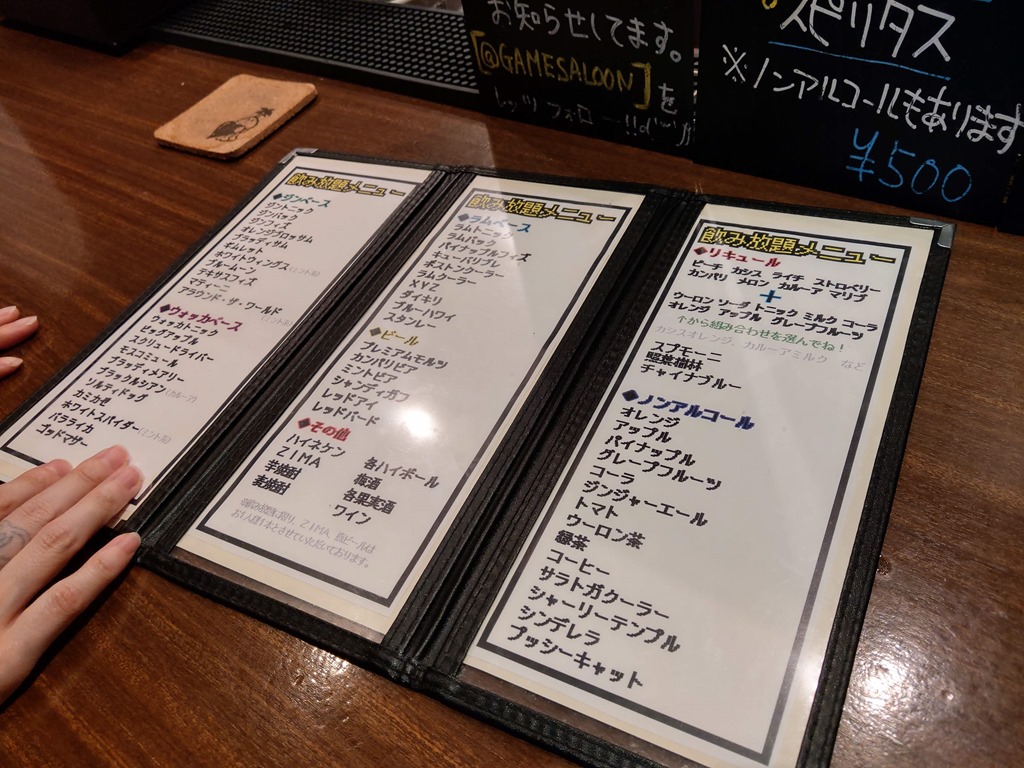 お知らせしてます。
[@GAMESALOON]を
レッツ フォロー!!
スピリタス
※ノンアルコールもあります
¥500
飲み放題メニュー
◆ジンベース
ジントニック
ジンバック
ジンフィズ
オレンジブロッサム
ブラッディサム
ギムレット
ホワイトウィングス(ミント系)
ブルームーン
テキサスフィズ
マティーニ
アラウンド・ザ・ワールド(ミント系)
◆ウォッカベース
ウォッカトニック
ビッグアップル
スクリュードライバー
モスコミュール
ブラッディメアリー
ブラックルシアン(カルーア)
ソルティドッグ
カミカゼ
ホワイトスパイダー(ミント系)
バラライカ
ゴッドマザー
飲み放題メニュー
◆ラムベース
ラムトニック
ラムバック
パイナップルフィズ
キューバリブレ
ボストンクーラー
ラムコーラ
XYZ
ダイキリ
ブルーハワイ
スタンレー
◆ビール
プレミアムモルツ
カンパリビア
ミントビア
シャンディガフ
レッドアイ
レッドバード
◆その他
ハイネケン
ZIMA
芋焼酎
麦焼酎
各ハイボール
梅酒
各果実酒
ワイン
お1人様1本とさせていただいております。
飲み放題メニュー
◆リキュール
ピーチ カシス ライチ ストロベリー
カンパリ メロン カルーア マリブ
+
ウーロン ソーダ トニック ミルク コーラ
オレンジ アップル グレープフルーツ
↑から組み合わせを選んでね!
カシスオレンジ、カルーアミルク など
スプモーニ
照葉樹林
チャイナブルー
◆ノンアルコール
オレンジ
アップル
パイナップル
グレープフルーツ
コーラ
ジンジャーエール
トマト
ウーロン茶
緑茶
コーヒー
サラトガクーラー
シャーリーテンプル
シンデレラ
プッシーキャット